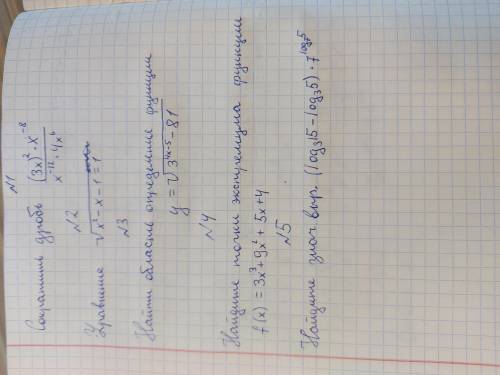 №1
Сократить дробь (3x)² · x⁻⁸ / x⁻¹² · 4x⁶
№2
Уравнение √x² - x - 1 = 1
№3
Найти область определение функции
y = √3⁴ˣ⁻⁵ - 81
№4
Найдите точки экстремума функции
f(x) = 3x³ + 9x² + 5x + 4
№5
Найдите знач выр. (log₃15 - log₃5) · 7^log₇5